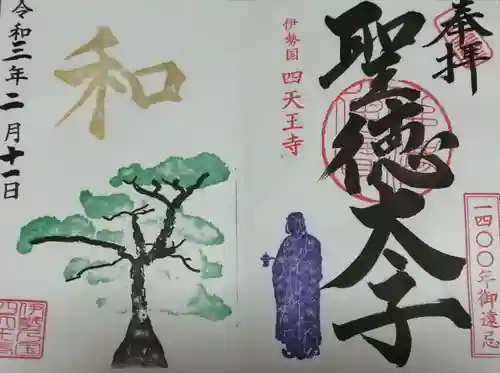 奉拝
聖徳太子
一四〇〇年御遠忌
伊勢国 四天王寺
和
令和三年二月十一日